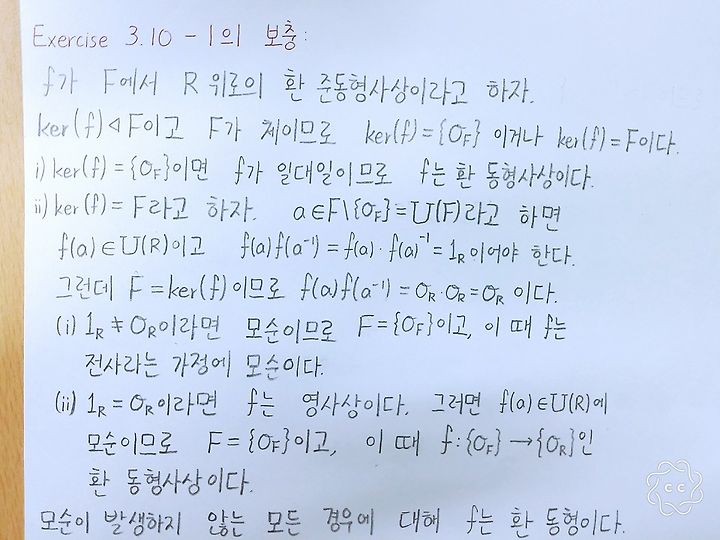 Exercise 3.10 - 1의 보충:
f가 F에서 R 위로의 환 준동형사상이라고 하자.
ker(f)◁F이고 F가 체이므로 ker(f)={0_F} 이거나 ker(f)=F이다.
i) ker(f)={0_F}이면 f가 일대일이므로 f는 환 동형사상이다.
ii) ker(f)=F라고 하자. a∈F\{0_F}=U(F)라고 하면
f(a)∈U(R)이고 f(a)f(a⁻¹)=f(a)·f(a)⁻¹=1_R이어야 한다.
그런데 F=ker(f)이므로 f(a)f(a⁻¹)=0_R·0_R=0_R 이다.
(i) 1_R≠0_R이라면 모순이므로 F={0_F}이고, 이 때 f는
전사라는 가정에 모순이다.
(ii) 1_R=0_R이라면 f는 영사상이다. 그러면 f(a)∈U(R)에
모순이므로 F={0_F}이고, 이 때 f:{0_F}→{0_R}인
환 동형사상이다.
모순이 발생하지 않는 모든 경우에 대해 f는 환 동형이다.
CC